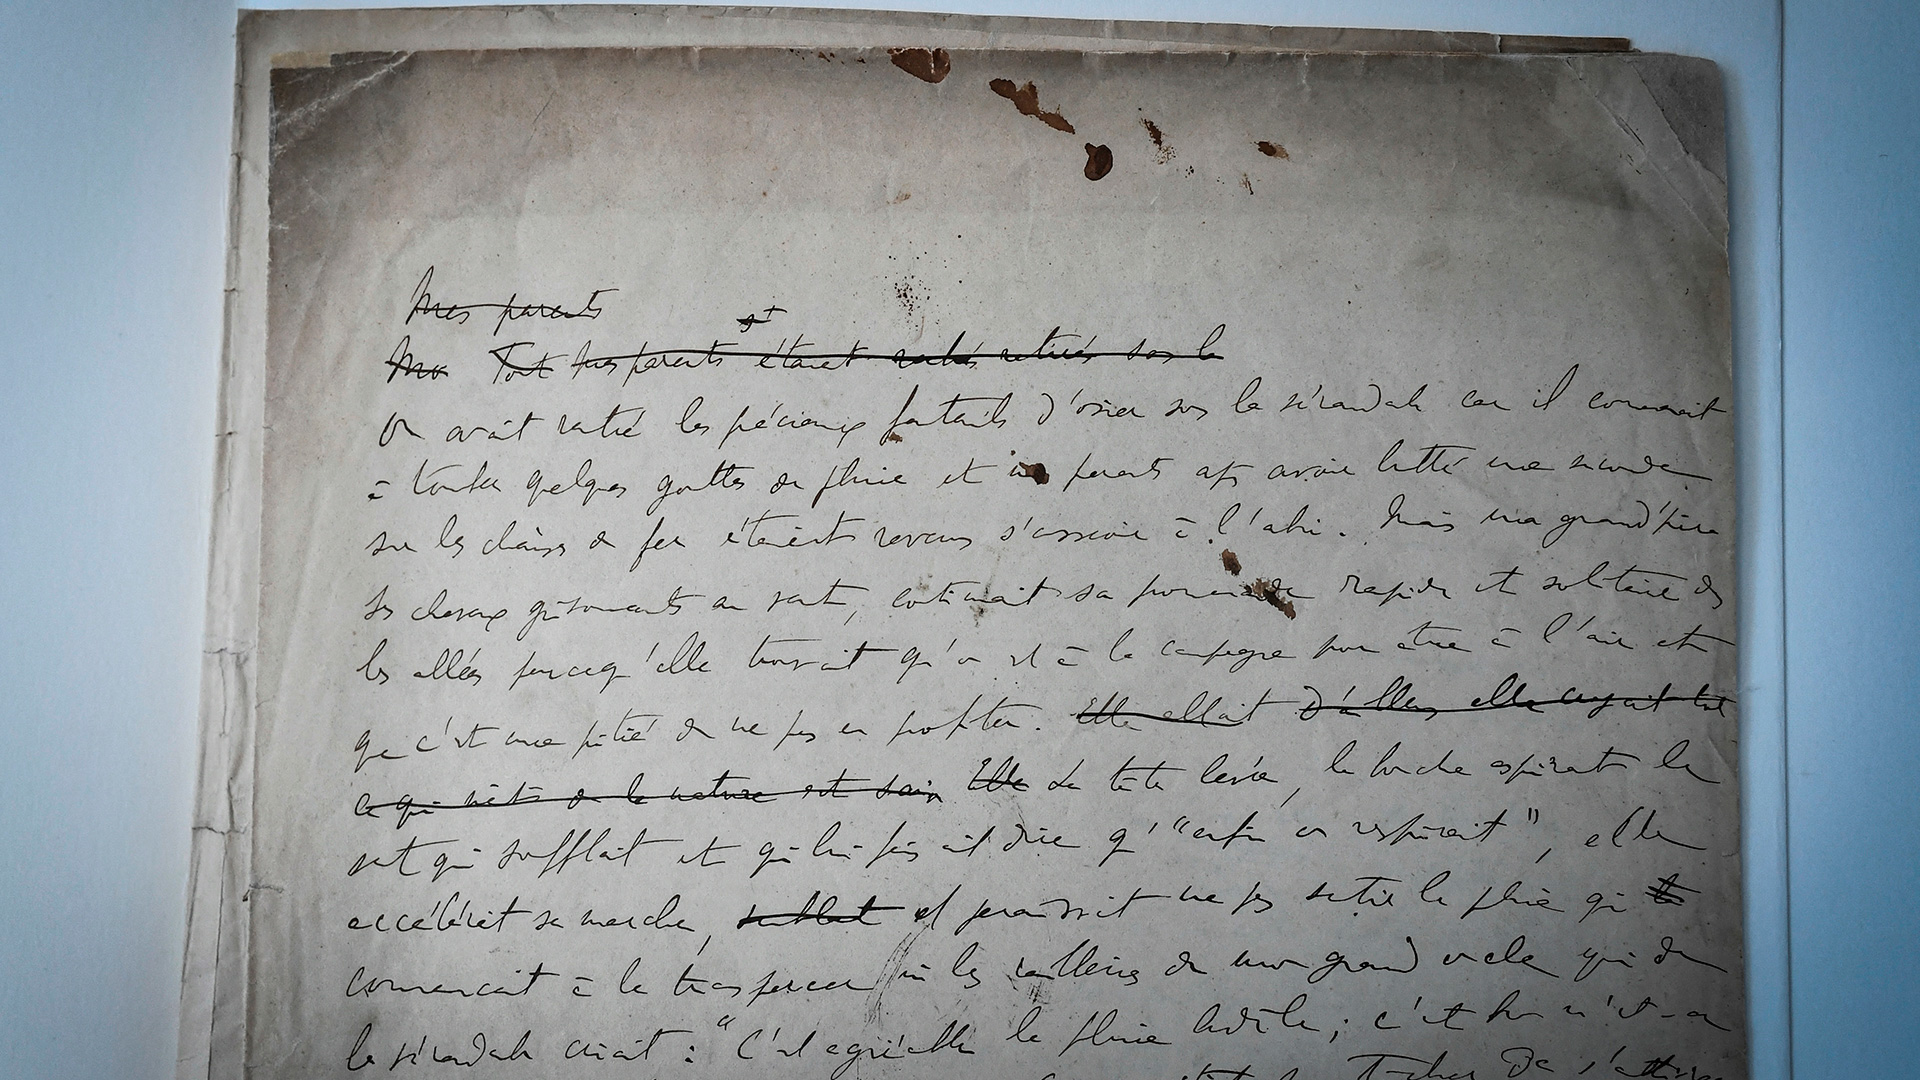 Mes parents
Ma Tout mes parents étaient rentrés retirés sous la
st
On avait rentré les précieux fauteuils d'osier sous la vérandah car il commençait
à tomber quelques gouttes de pluie et mes parents aps avoir lutté une seconde
sur les chaises de fer étaient revenus s'asseoir à l'abri. Mais ma grand'mère
ses cheveux grisonnants au vent, continuait sa promenade rapide et solitaire ds
les allées parceq'elle trouvait qu'on est à la campagne pour être à l'air et
que c'est une pitié de ne pas en profiter. Elle allait D'ailleurs elle croyait tout
ce qui vient de la nature est sain Elle La tête levée, la bouche aspirant le
vent qui soufflait et qui lui faisait dire q' "enfin on respirait", elle
accélérait sa marche, et paraissait ne pas sentir la pluie qui
commençait à la transpercer ni les railleries de mon grand oncle qui de
la vérandah criait : "C'est agréable la pluie hein; c'est bon n'est-ce